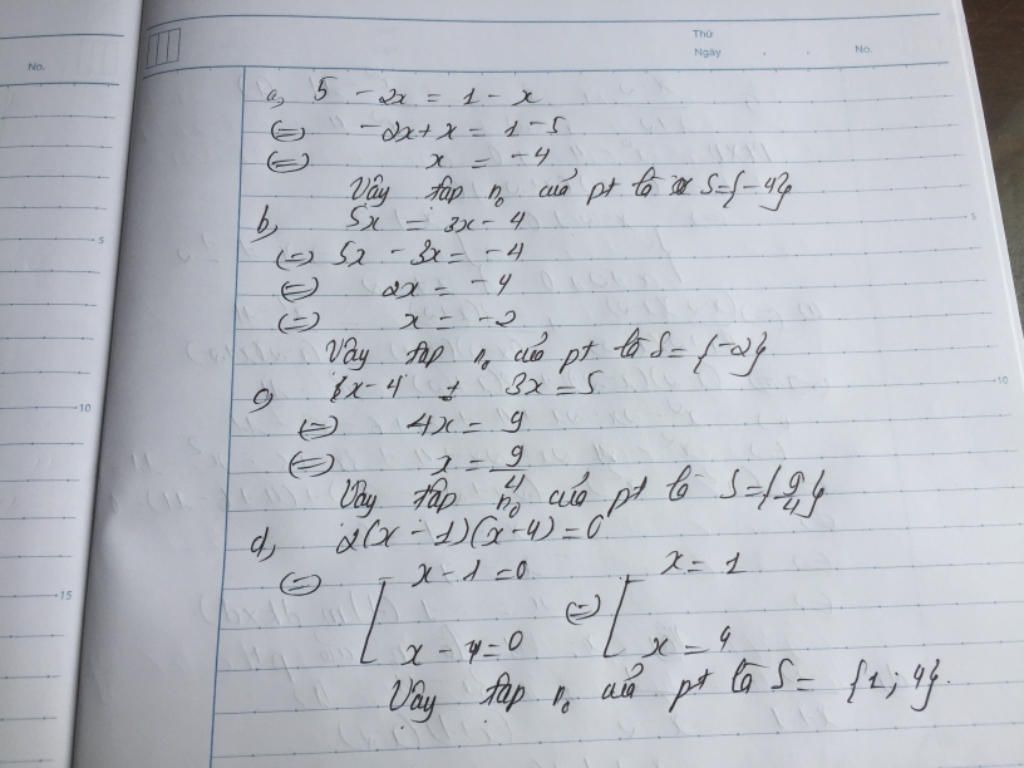 No.
Thứ
Ngày . . No.
a, 5 - 2x = 1 - x
(=) -2x + x = 1 - 5
(=) x = -4
Vậy tập n₀ của pt là S={-4}
b, 5x = 3x - 4
(=) 5x - 3x = -4
(=) 2x = -4
(=) x = -2
Vậy tập n₀ của pt là S = {-2}
c, x - 4 + 3x = 5
(=) 4x = 9
(=) x = 9/4
Vậy tập n₀ của pt là S={9/4}
d, 2(x - 1)(x - 4) = 0
(=) [ x - 1 = 0 (=) [ x = 1
x - 4 = 0 x = 4
Vậy tập n₀ của pt là S = {1; 4}.
5
10
15
5
10